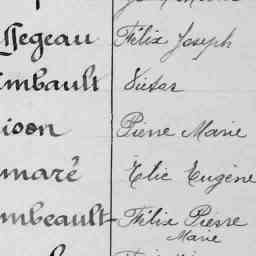 ssegeau Félix Joseph
imbault Victor
ioon Pierre Marie
maré Elie Eugène
mbeault Félix Pierre
Marie